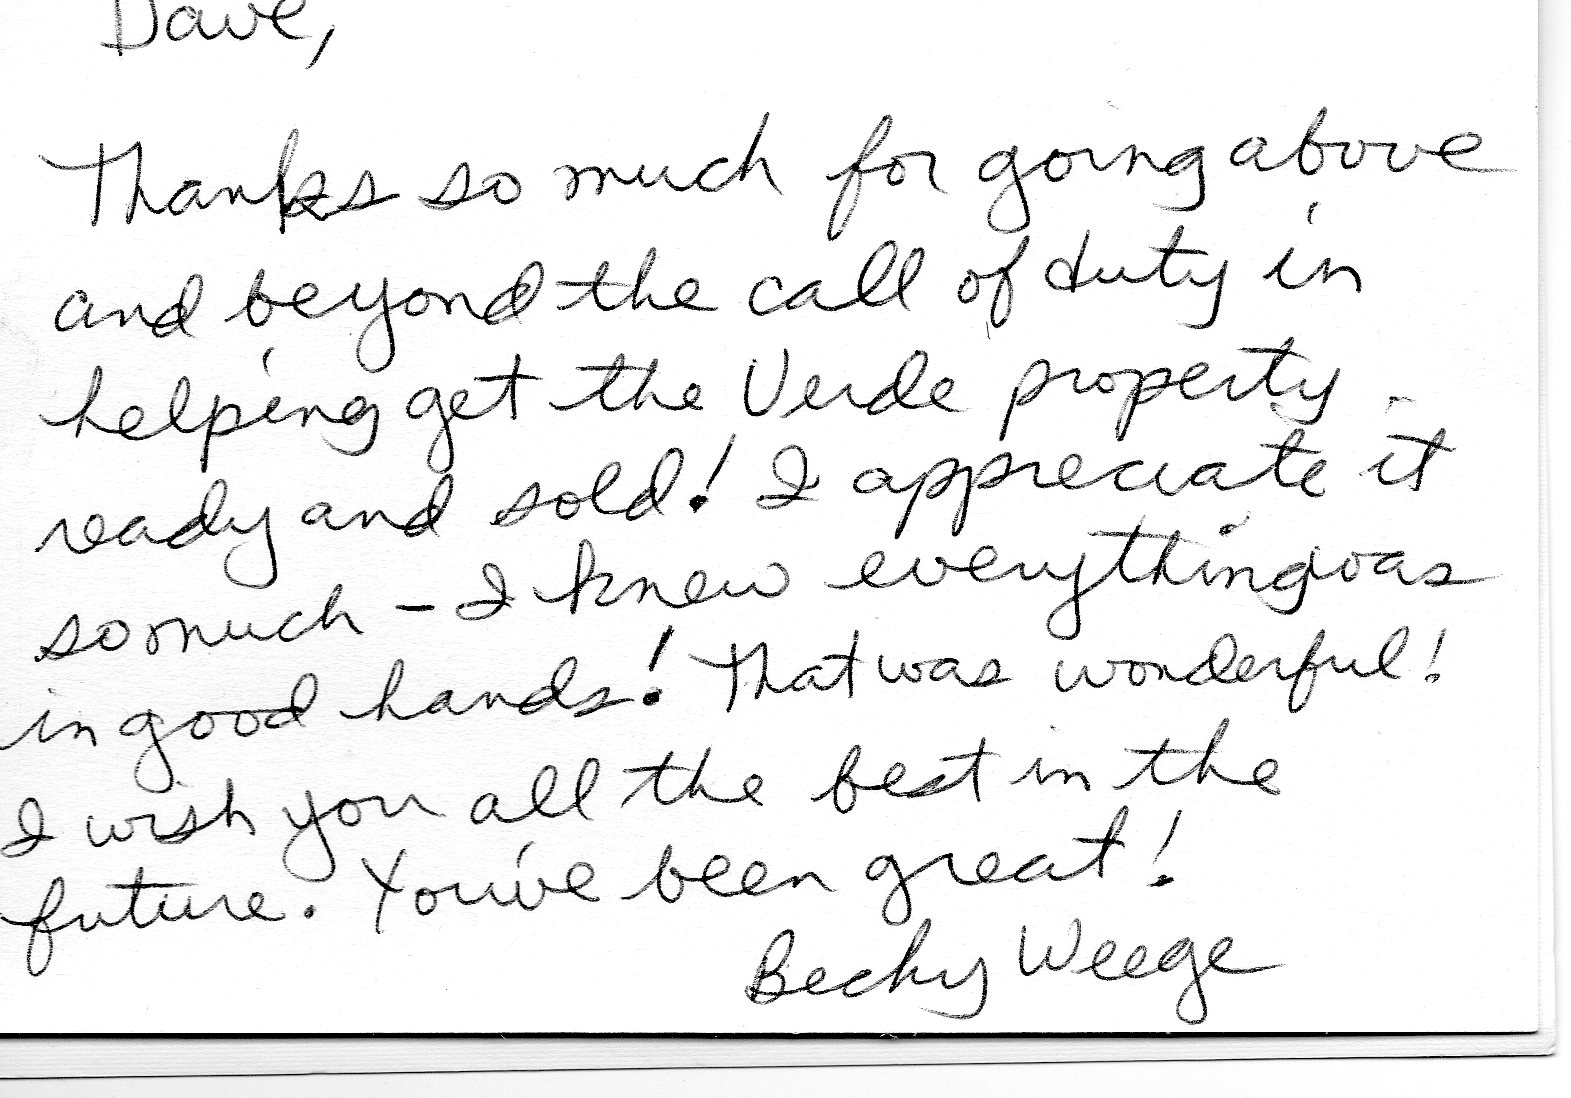 Dave,
Thanks so much for going above
and beyond the call of duty in
helping get the Verde property
ready and sold! I appreciate it
so much - I knew everything was
in good hands! That was wonderful!
I wish you all the best in the
future. You've been great!
Becky Weege